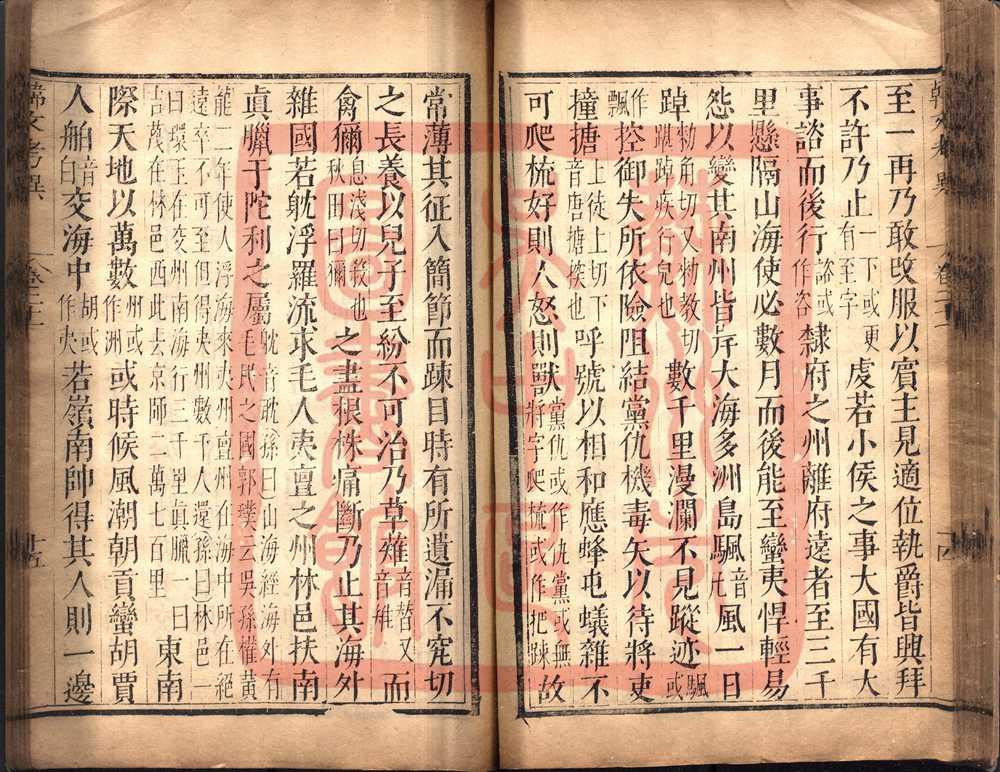 至一再乃敢改服以賓主見適位執爵皆興拜
不許乃止一下或更有至字虔若小侯之事大國有大
事諮而後行諮或作咨隸府之州離府遠者至三千
里懸隔山海使必數月而後能至蠻夷悍輕易
怨以變其南州皆岸大海多洲島颿音凡風一日
踔勑角切又勑敎切踸踔疾行皃也數千里漫瀾不見蹤迹颿或
作飄控御失所依險阻結黨仇機毒矢以待將吏
撞搪上徒上切下音唐搪揬也呼號以相和應蜂屯蟻雜不
可爬梳好則人怒則獸黨仇或作仇黨或無將字爬梳或作把踈故
常薄其征入簡節而踈目時有所遺漏不究切
之長養以兒子至紛不可治乃草薙音替又音雉而
禽獮息淺切殺也秋田曰獮之盡根株痛斷乃止其海外
雜國若躭浮羅流求毛人夷亶之州林邑扶南
眞臘于陀利之屬躭音耽孫曰山海經海外有毛民之國郭璞云吳孫權黃
龍二年使人浮海求夷州亶州在海中所在絕遠卒不可至但得夷州數千人還孫曰林邑一
曰環王在交州南海行三千里眞臘一曰吉蔑在林邑西此去京師二萬七百里東南
際天地以萬數州或作洲或時候風潮朝貢蠻胡賈
人舶音白交海中胡或作夷若嶺南帥得其人則一邊
韓文考異
卷二十一
十四
韓文考異
卷二十一
十五
圖書館